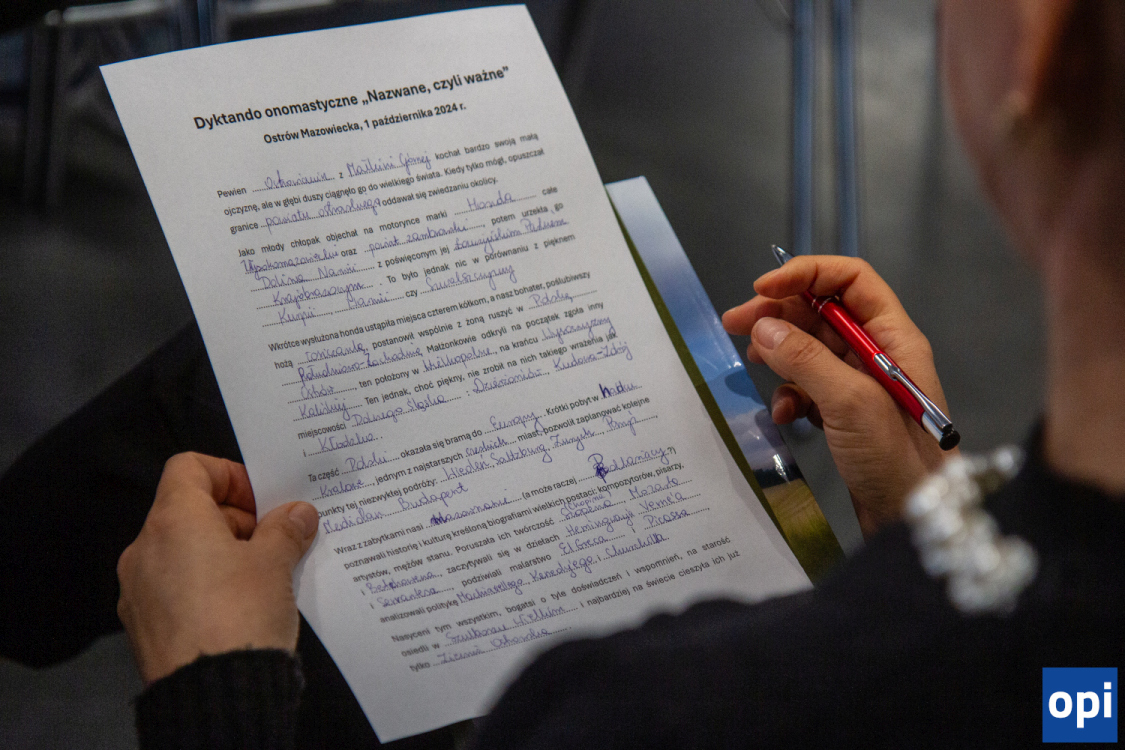 Dyktando onomastyczne „Nazwane, czyli ważne”
Ostrów Mazowiecka, 1 października 2024 r.
Pewien Ostrowianin z Małkini Górnej kochał bardzo swoją małą
ojczyznę, ale w głębi duszy ciągnęło go do wielkiego świata. Kiedy tylko mógł, opuszczał
granice powiatu ostrowskiego oddawał się zwiedzaniu okolicy.
Jako młody chłopak objechał na motorynce marki Honda całe
Wysokomazowieckie oraz powiat zambrowski, potem urzekła go
Dolina Narwi z poświęconym jej Łomżyńskim Parkiem
Krajobrazowym. To było jednak nic w porównaniu z pięknem
Kurpii, Warmii czy Suwalszczyzny
Wkrótce wysłużona honda ustąpiła miejsca czterem kółkom, a nasz bohater, poślubiwszy
hożą łomżankę, postanowił wspólnie z żoną ruszyć w Polskę
Południowo-Zachodnią. Małżonkowie odkryli na początek zgoła inny
Ostrów, ten położony w Wielkopolsce, na krańcu Wysoczyzny
Kaliskiej. Ten jednak, choć piękny, nie zrobił na nich takiego wrażenia jak
miejscowości Dolnego Śląska: Dzierżoniów, Kudowa-Zdrój
i Kłodzko.
Ta część Polski okazała się bramą do Europy. Krótki pobyt w
Kralove, jednym z najstarszych czeskich miast, pozwolił zaplanować kolejne
punkty tej niezwykłej podróży: Wiedeń, Salzburg, Zurych, Rzym
Mediolan Budapeszt
Wraz z zabytkami nasi Mazowszanie (a może raczej Podlasianie?)
poznawali historię i kulturę kreśloną biografiami wielkich postaci: kompozytorów, pisarzy,
artystów, mężów stanu. Poruszała ich twórczość Chopina Mozarta
i Bethovena, zaczytywali się w dziełach Hemingwaya Verne'a
i Servantesa, podziwiali malarstwo El Greca i Picassa
analizowali politykę Machiavellego, Kenedyego i Churchilla
Nasyceni tym wszystkim, bogatsi o tyle doświadczeń i wspomnień, na starość
osiedli w Szulborzu Wielkim i najbardziej na świecie cieszyła ich już
tylko Ziemia Ostrowska
opi